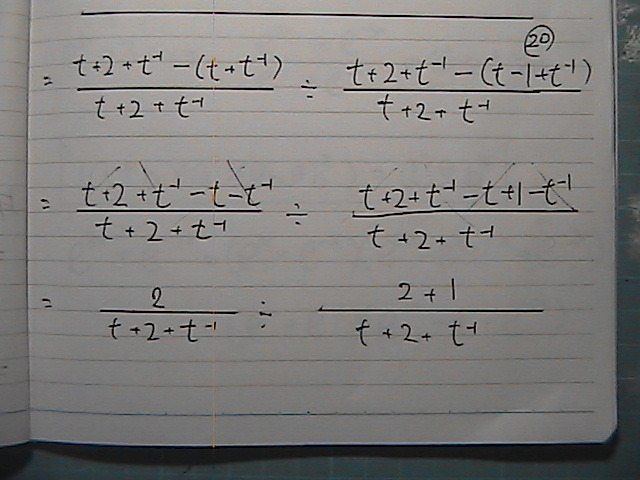 ⑳
= (t+2+t⁻¹-(t+t⁻¹))/(t+2+t⁻¹) ÷ (t+2+t⁻¹-(t-1+t⁻¹))/(t+2+t⁻¹)
= (t+2+t⁻¹-t-t⁻¹)/(t+2+t⁻¹) ÷ (t+2+t⁻¹-t+1-t⁻¹)/(t+2+t⁻¹)
= 2/(t+2+t⁻¹) ÷ (2+1)/(t+2+t⁻¹)